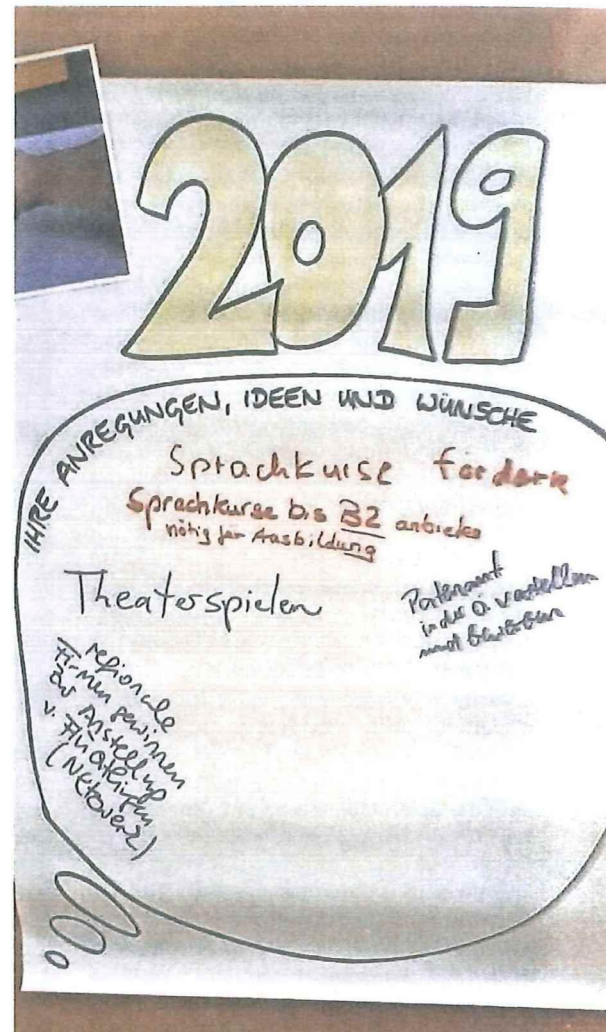 2019
IHRE ANREGUNGEN, IDEEN UND WÜNSCHE
Sprachkurse fördern
Sprachkurse bis B2 anbieten
nötig für Ausbildung
Theaterspielen
Patenamt
in der Ö. vorstellen
und bewerben
regionale
Firmen gewinnen
zur Anstellung
v. Flüchtlingen
(Netzwerk)